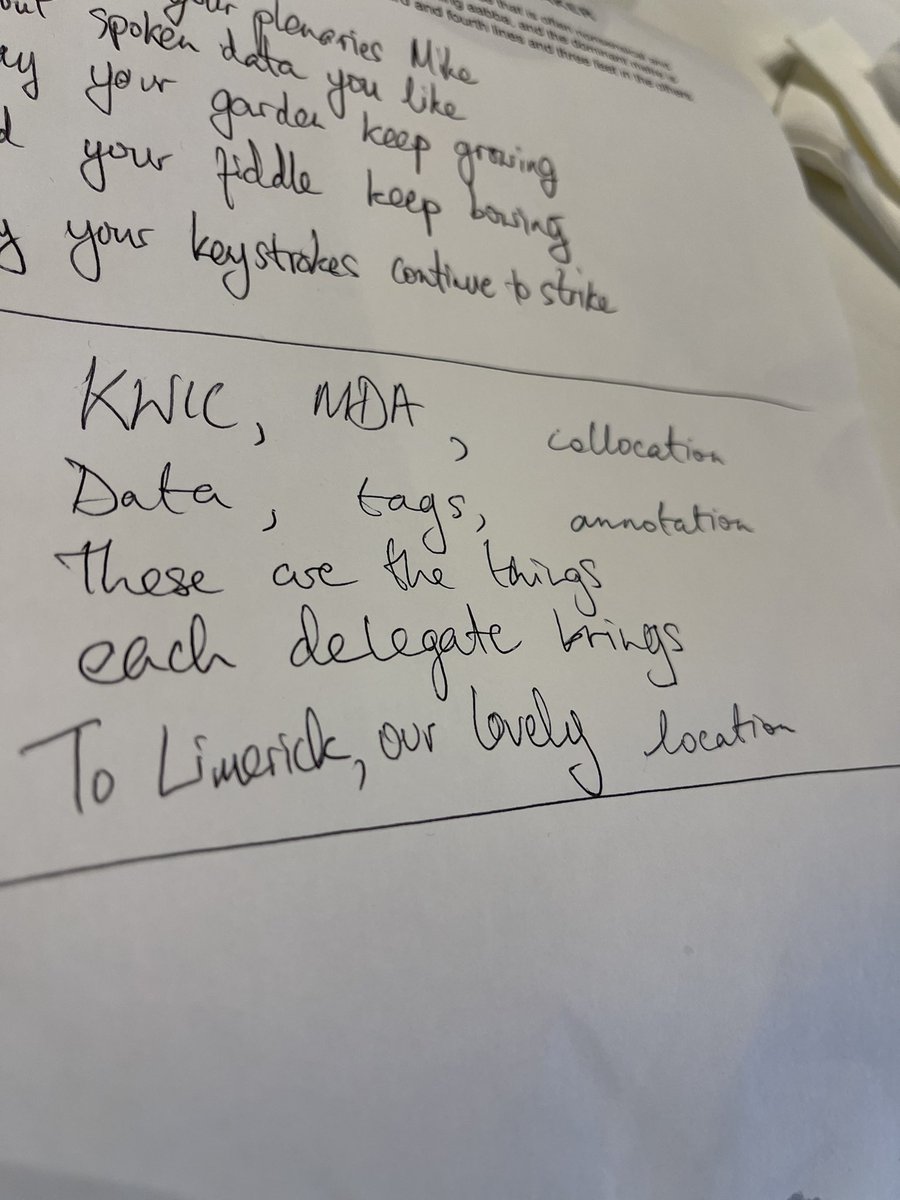 that is often nonsensical and
aabba, and the dominant metre is
and fourth lines and three feet in the others
your plenaries Mike
spoken data you like
your garden keep growing
your fiddle keep bowing
your keystrokes continue to strike
KWIC, MDA, collocation
Data, tags, annotation
These are the things
each delegate brings
To Limerick, our lovely location